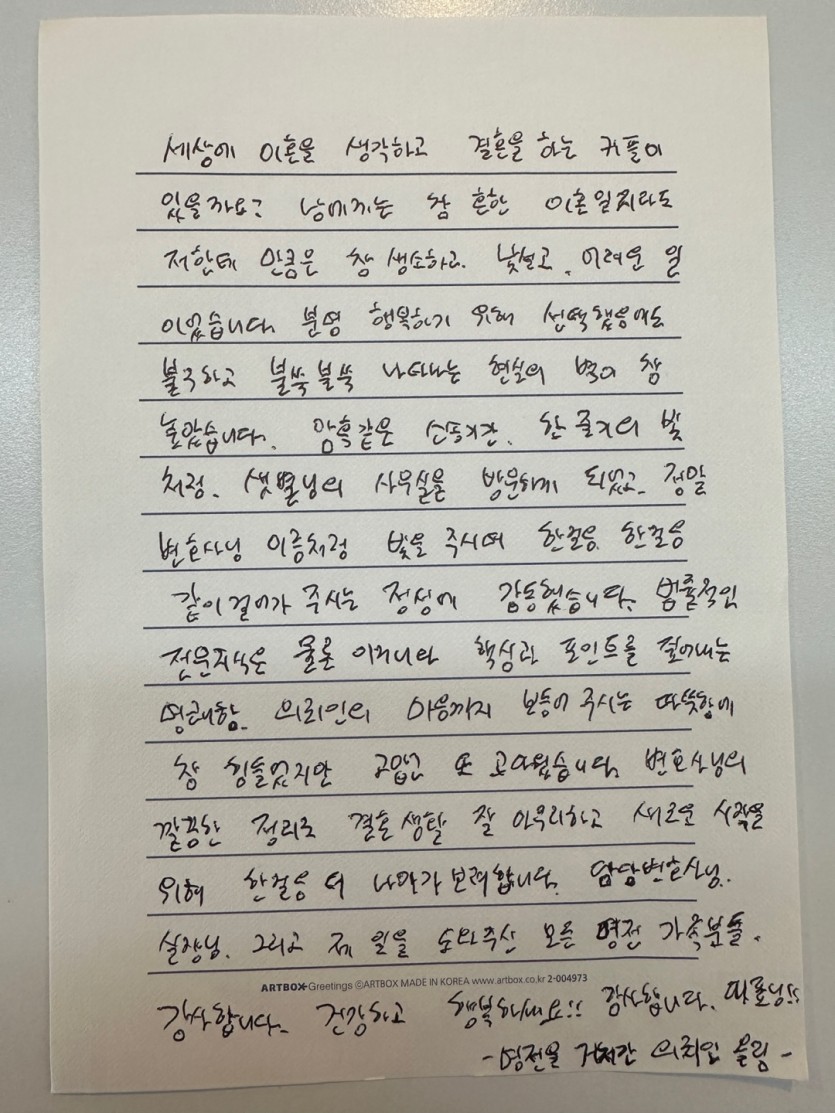 세상에 이혼을 생각하고 결혼을 하는 커플이
있을까요? 남에게는 참 흔한 이혼일지라도
저한테 만큼은 참 생소하고. 낯설고. 어려운 일
이었습니다. 분명 행복하기 위해 선택했음에도
불구하고 불쑥불쑥 나타나는 현실의 벽이 참
높았습니다. 암흑같은 소송기간. 한 줄기의 빛
처럼. 샛별님의 사무실을 방문하게 되었고. 정말
변호사님 이름처럼 빛을 주시며 한걸음. 한걸음
같이 걸어가 주시는 정성에 감동했습니다. 범출적인
전문지식은 물론 이거니와 핵심과 포인트를 짚어내는
명쾌함. 의뢰인의 마음까지 보듬어 주시는 따뜻함에
참 힘들었지만 고맙고 또 고마웠습니다. 변호사님의
깔끔한 정리로 결혼생활 잘 마무리하고 새로운 시작을
위해 한걸음 더 나아가보려합니다. 담당변호사님.
실장님. 그리고 제 일을 도와주신 모든 명전 가족분들.
ARTBOX Greetings ©ARTBOX MADE IN KOREA www.artbox.co.kr 2-004973
감사합니다. 건강하고 행복하세요!! 감사합니다. 대표님!!
- 명전을 거쳐간 의뢰인 올림 -